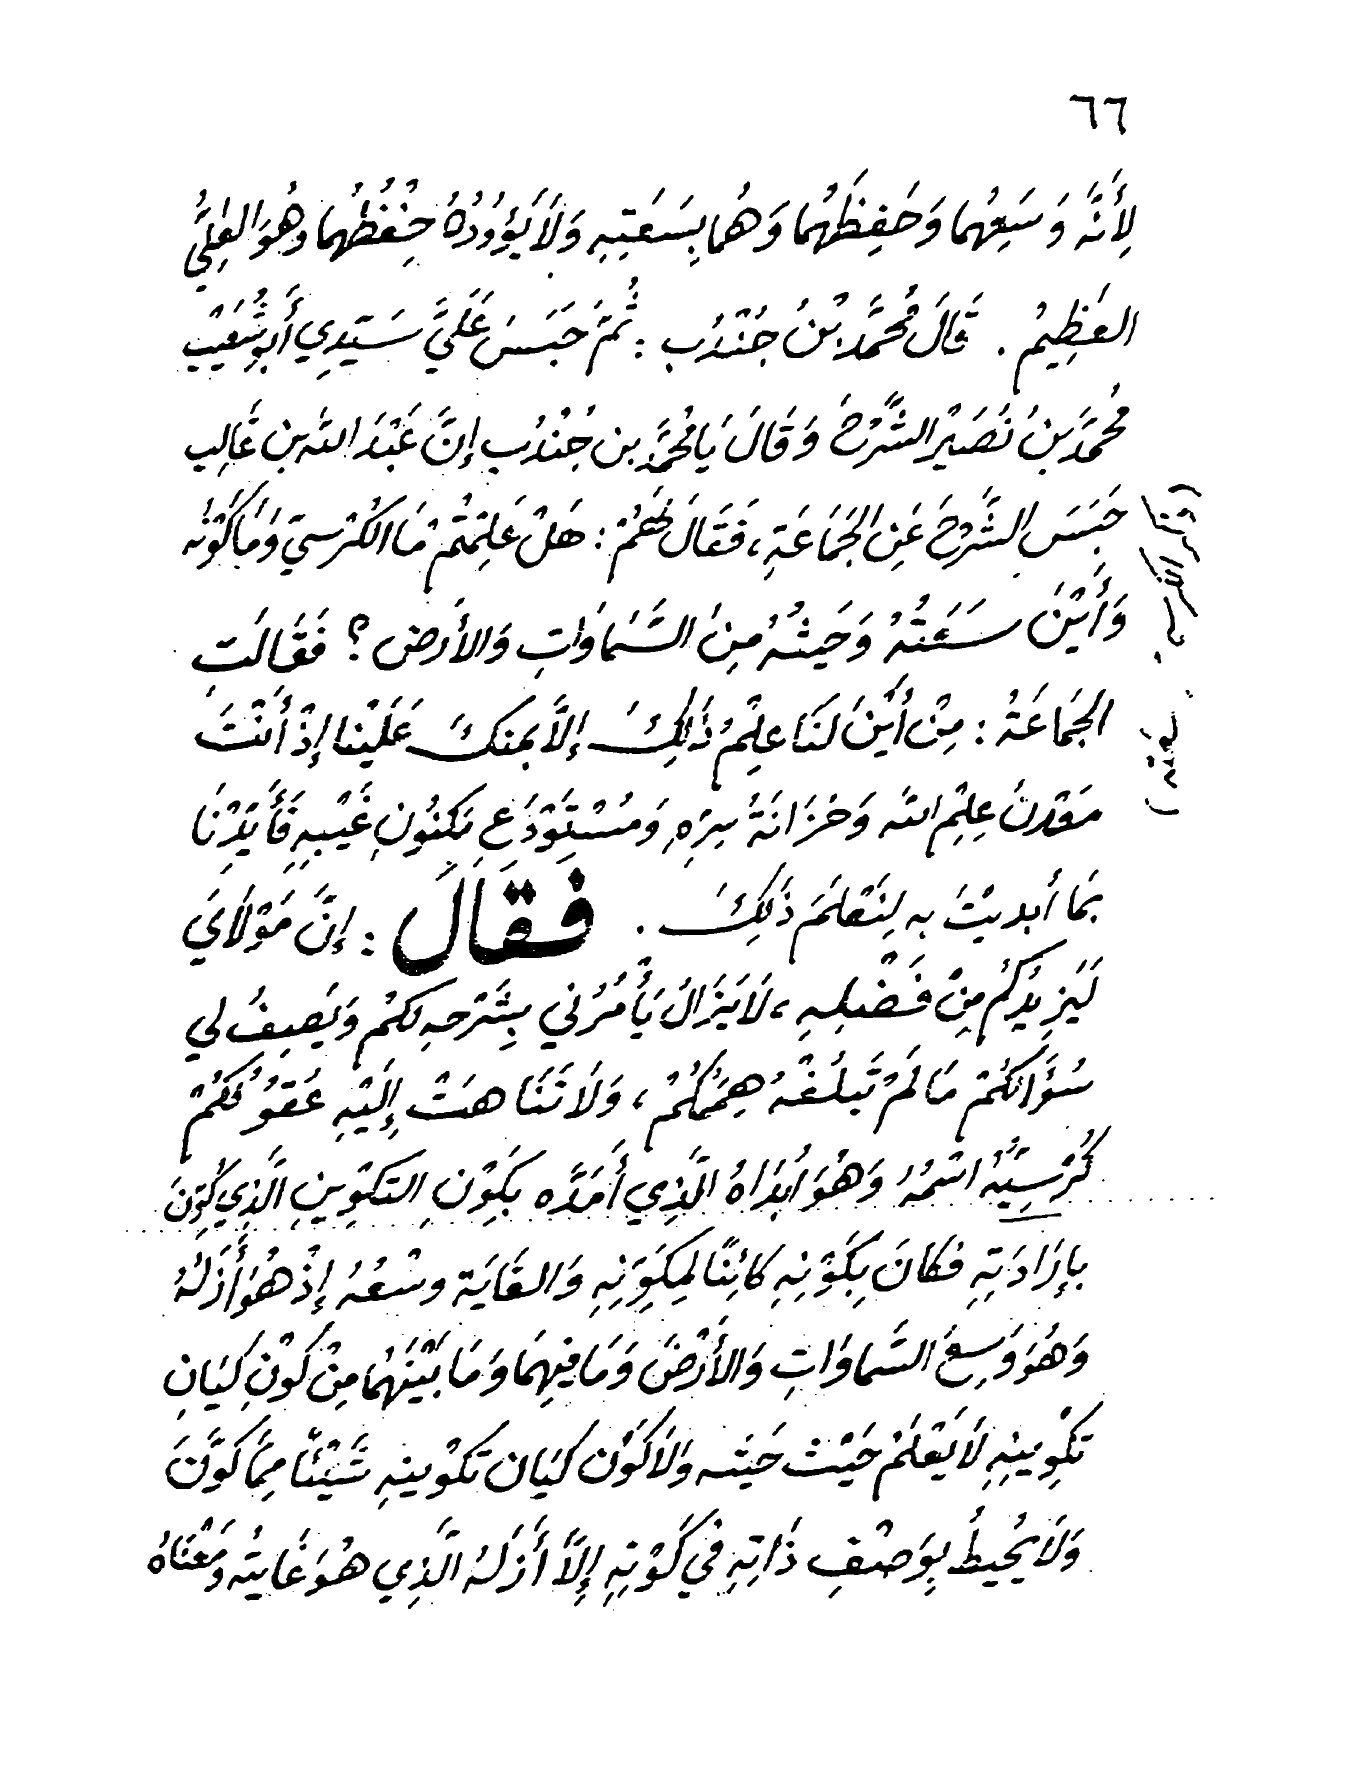 ٦٦
لِأَنَّهُ وَسَعِهُما وَحَفِظَهُما وَهُما بِسَعَتِهِ وَلَا يَؤُودُهُ حِفْظُهُما وَهُوَ العَلِيُّ
العَظِيمُ . قَالَ مُحَمَّدُ بْنُ جُنْدُب : ثُمَّ حَبَسَ عَلَيَّ سَيِّدِي أَبِي شُعَيْب
مُحَمَّدَ بنُ نُصَيْر الشَّرْحَ وَقَالَ يَا مُحَمَّد بن جُنْدُب إِنَّ عَبْدَ الله بن غَالِب
حَبَسَ الشَّرْحَ عَنِ الجَمَاعَةِ ، فَقَالَ لَهُمْ : هَلْ عَلِمْتُمْ مَا الكُرْسِيّ وَمَا كَوْنُه
وَأَيْنَ سَعَتُهُ وَحَيْثُهُ مِنَ السَّمَاوَاتِ وَالأَرض ؟ فَقَالَت
الجَمَاعَةُ : مِنْ أَيْنَ لَنَا عِلْمُ ذَلِكَ إِلَّا بِمَنكَ عَلَيْنا إِذْ أَنْتَ
مَعْدِنُ عِلْمِ الله وَخَزَانَةُ سِرِّهِ وَمُسْتَوْدَعِ مَكْنُونِ غَيْبِهِ فَأَيِّدْنَا
بمَا أَبديْتَ بِهِ لِنَعْلَمَ ذَلِكَ . فَقَالَ : إِنَّ مَوْلَايَ
لَيَزِيدُكُم مِنْ فَضْلِهِ ، لَا يَزَالُ يَأْمُرُنِي بِشَرْحِهِ لَكُم وَيَصِفُ لي
سُؤَالكُمْ مَا لَمْ تَبلُغْهُ هِمَمُكُمْ ، وَلَا تَنَاهَتْ إِلَيْهِ عُقُولُكُمْ
كُرْسِيُّهُ اسْمُهُ وَهُوَ ابْدَاهُ الَّذِي أَمَدَّه بِكَوْنِ التكوِينِ الَّذِي كَوَّنَ
بإِرَادَتِهِ فكانَ بِكَوْنِهِ كَائِنًا لِمُكَوِّنِهِ وَالغَايَة وسْعُهُ إِذْ هُوَ أَزَلُهُ
وَهُوَ وَسِعَ السَّماوَاتِ وَالأَرْضَ وَمَا فِيهِمَا وَمَا بَيْنَهُمَا مِنْ كَوْنِ كَيَانِ
تَكْوِينِهِ لَا يَعْلَمُ حَيْثَ حَيْثه وَلَا كَوْن كَيَان تَكْوِينِهِ شَيْئًا مِمَّا كَوَّنَ
وَلَا يُحِيطُ بِوَصْفِ ذَاتِهِ في كَوْنِهِ إِلَّا أَزَلَهُ الَّذِي هُوَ غَايَتُه وَمَعْنَاهُ